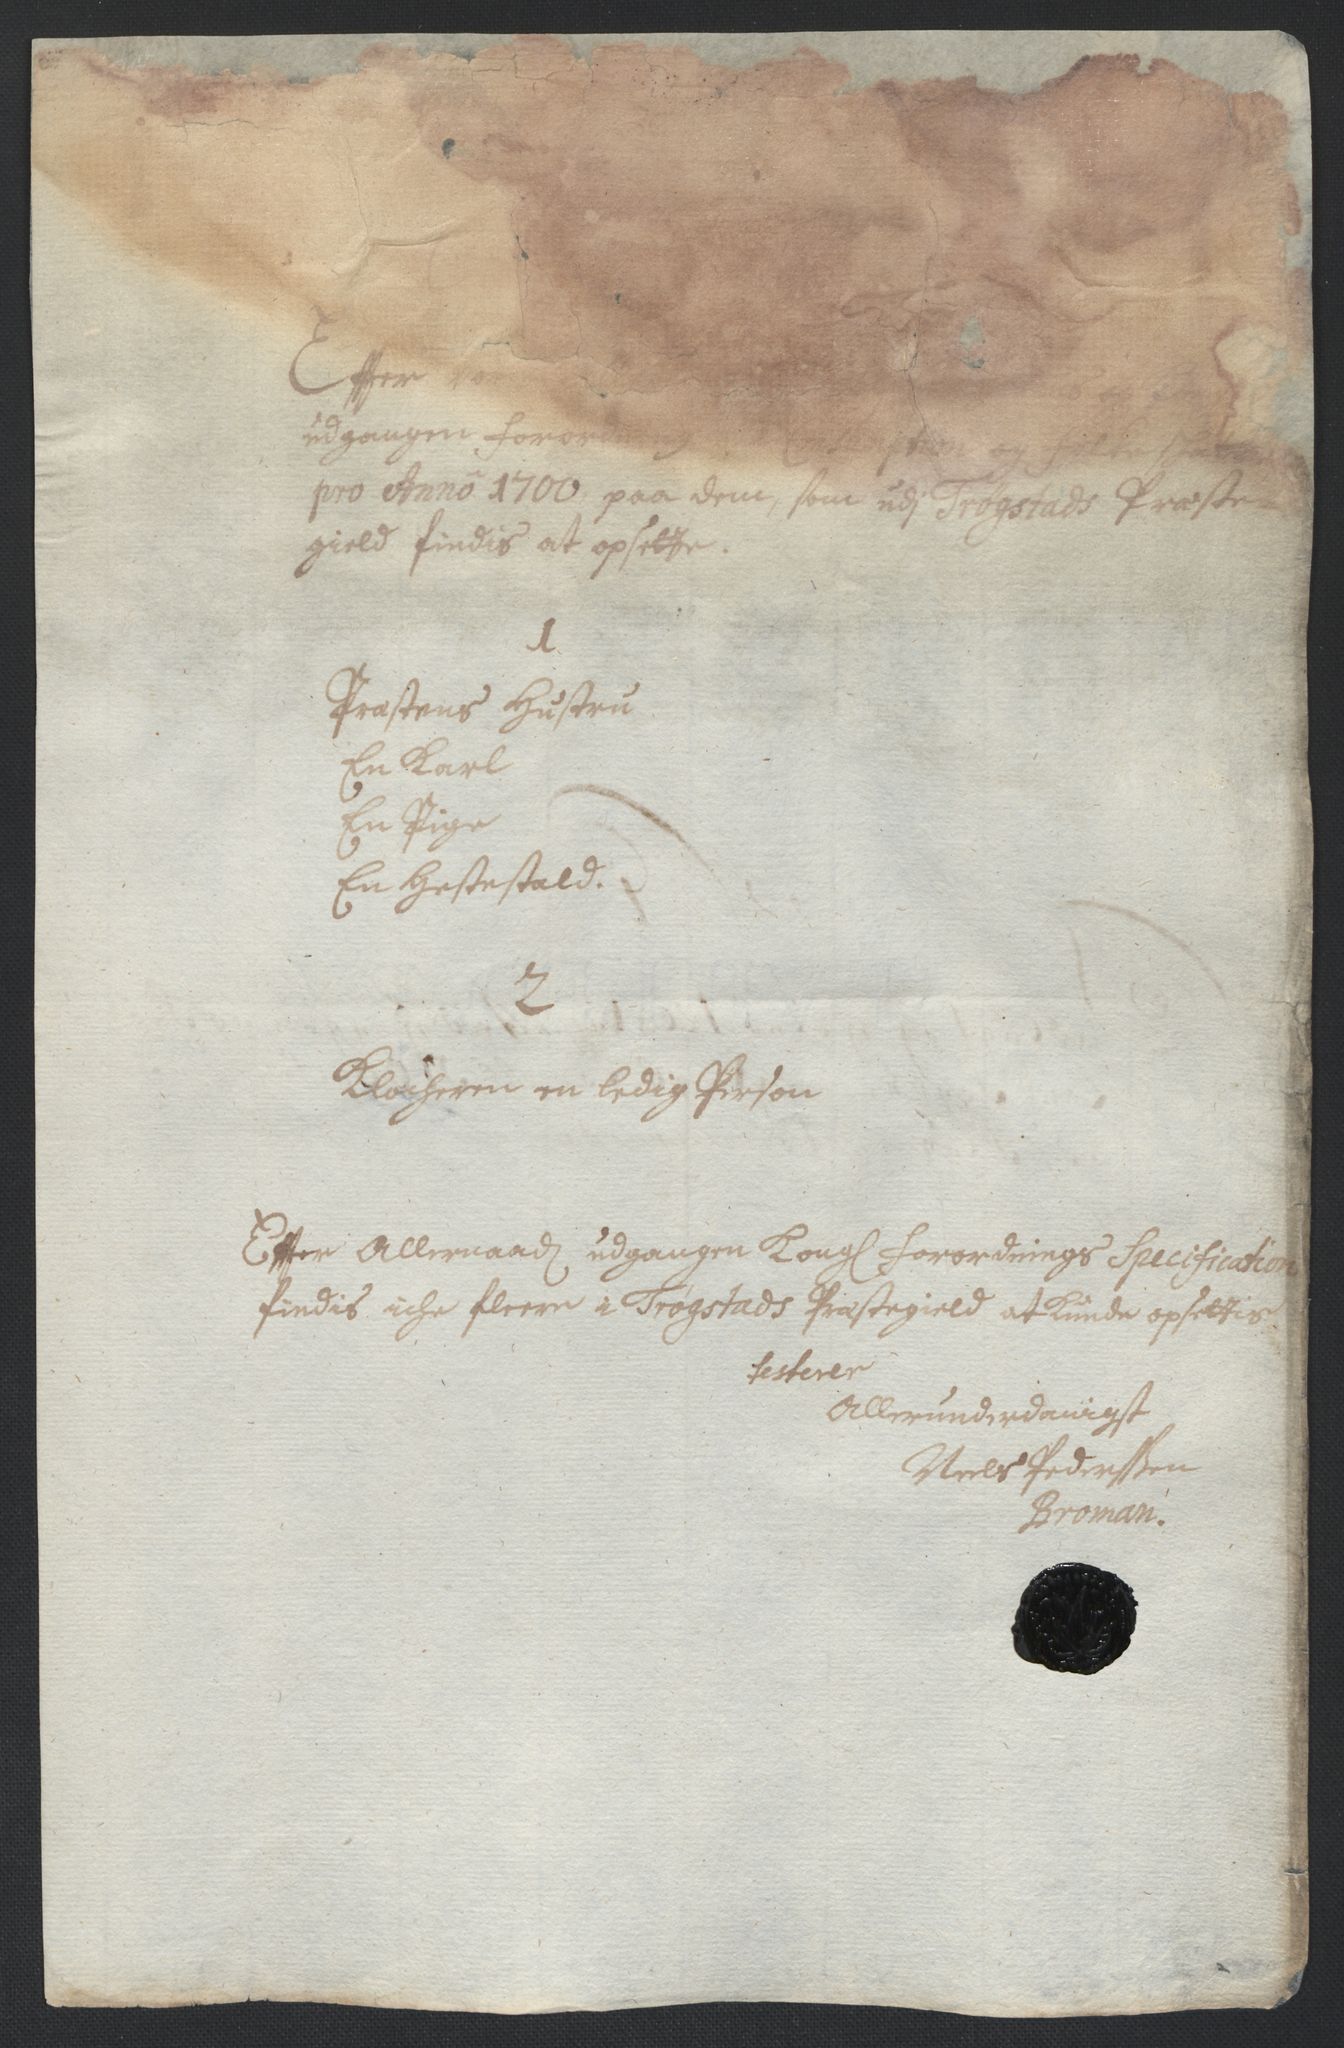 Effter
udgangen forordning og
pro Anno 1700 paa dem, som udj Trøgstads Præste-
gield findis at opsette.
1
Præstens Hustru
En Karl
En Pige
En Hestestald.
2
Klocheren en ledig Person
Effter Allernaad udgangen Kongl forordnings Specification
findis iche fleere i Trøgstads Præstegield at kunde opsettis
testerer
Allerunderdanigst
Niels Pederssen
Broman.